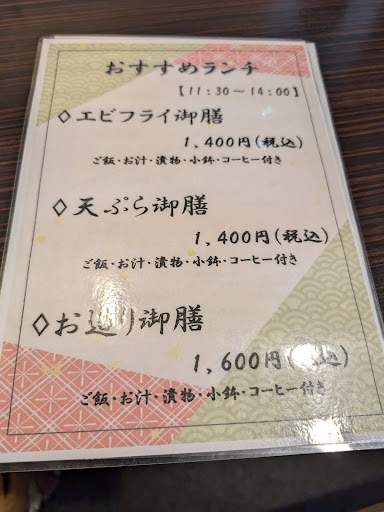 おすすめランチ
【11:30～14:00】
◇エビフライ御膳
1,400円(税込)
ご飯・お汁・漬物・小鉢・コーヒー付き
◇天ぷら御膳
1,400円(税込)
ご飯・お汁・漬物・小鉢・コーヒー付き
◇お造り御膳
1,600円(税込)
ご飯・お汁・漬物・小鉢・コーヒー付き